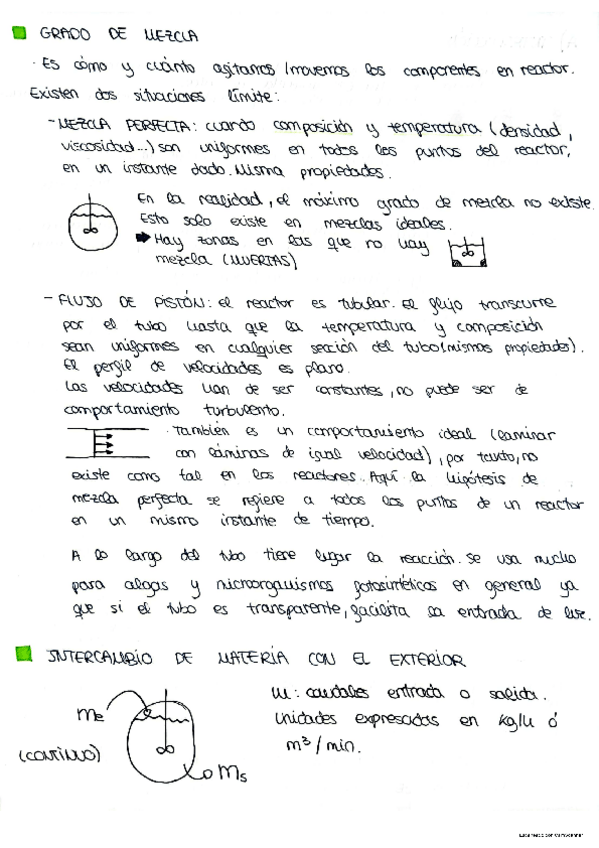 GRADO DE MEZCLA
· Es cómo y cuánto agitamos / movemos los componentes en reactor.
Existen dos situaciones límite:
- MEZCLA PERFECTA: cuando composición y temperatura (densidad,
viscosidad...) son uniformes en todos los puntos del reactor,
en un instante dado. Misma propiedades.
En la realidad, el máximo grado de mezcla no existe.
Esto solo existe en mezclas ideales.
➡ Hay zonas en las que no hay
mezcla (MUERTAS)
- FLUJO DE PISTÓN: el reactor es tubular. El flujo transcurre
por el tubo hasta que la temperatura y composición
sean uniformes en cualquier sección del tubo (mismas propiedades).
El perfil de velocidades es plano.
Las velocidades han de ser constantes, no puede ser de
comportamiento turbulento.
· También es un comportamiento ideal (laminar
con láminas de igual velocidad), por tanto, no
existe como tal en los reactores. Aquí la hipótesis de
mezcla perfecta se refiere a todos los puntos de un reactor
en un mismo instante de tiempo.
A lo largo del tubo tiene lugar la reacción. Se usa mucho
para algas y microorganismos fotosintéticos en general ya
que si el tubo es transparente, facilita la entrada de luz.
INTERCAMBIO DE MATERIA CON EL EXTERIOR
me
(CONTINUO)
ms
m: caudales entrada o salida.
Unidades expresadas en kg/h ó
m³/min.